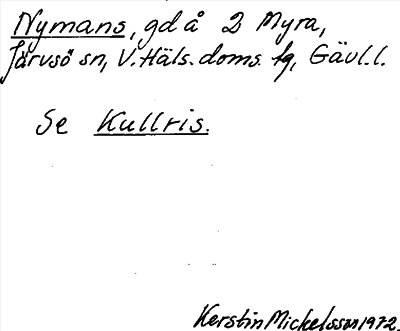 Nymans, gd å 2 Myra,
Järvsö sn, V. Häls. doms. fg, Gävl.l.
Se Kullris.
Kerstin Mickelsson 1972.